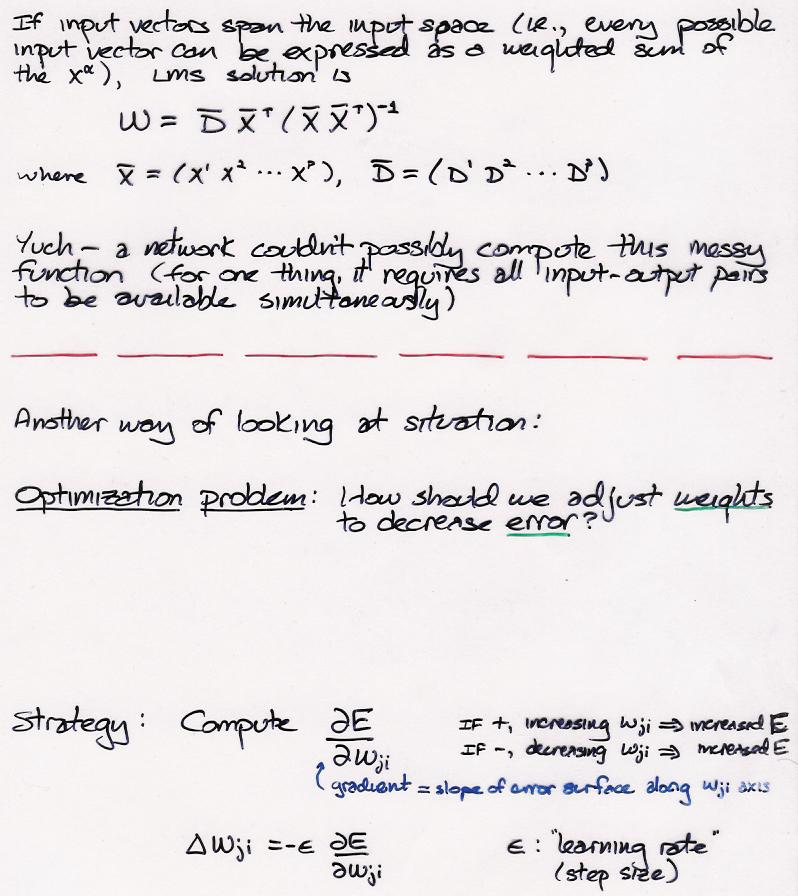 If input vectors span the input space (i.e., every possible
input vector can be expressed as a weighted sum of
the x^α), LMS solution is
W = D̄ X̄ᵀ (X̄ X̄ᵀ)⁻¹
where X̄ = (x¹ x² ··· xᵖ), D̄ = (D¹ D² ··· Dᵖ)
Yuch – a network couldn't possibly compute this messy
function (for one thing, it requires all input-output pairs
to be available simultaneously)
Another way of looking at situation:
Optimization problem: How should we adjust weights
to decrease error?
Strategy: Compute ∂E/∂wji
IF +, increasing wji ⇒ increased E
IF -, decreasing wji ⇒ increased E
gradient = slope of error surface along wji axis
Δwji = -ϵ ∂E/∂wji ϵ: "learning rate"
(step size)